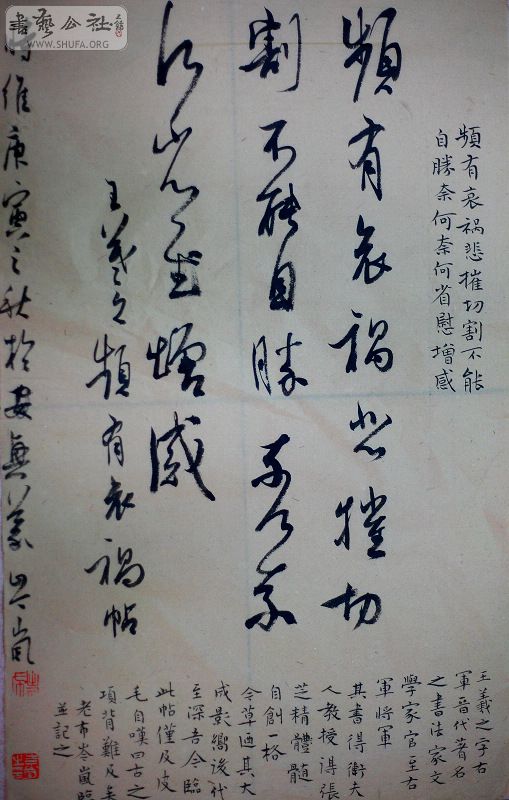 書藝公社
WWW.SHUFA.ORG
頻有哀禍悲摧切割不能
自勝奈何奈何省慰增感
頻有哀禍悲摧切
割不能自勝奈何奈
何省慰增感
王羲之頻有哀禍帖
時維庚寅之秋於安
王羲之字右
軍晉代著名
之書法家文
學家官至右
軍將軍
其書得衛夫
人教授得張
芝精體髓
自創一格
今草迺其大
成影嚮後代
至深吾今臨
此帖僅及皮
毛自嘆曰古之
項背難及矣
老布岑嵐臨
並記之